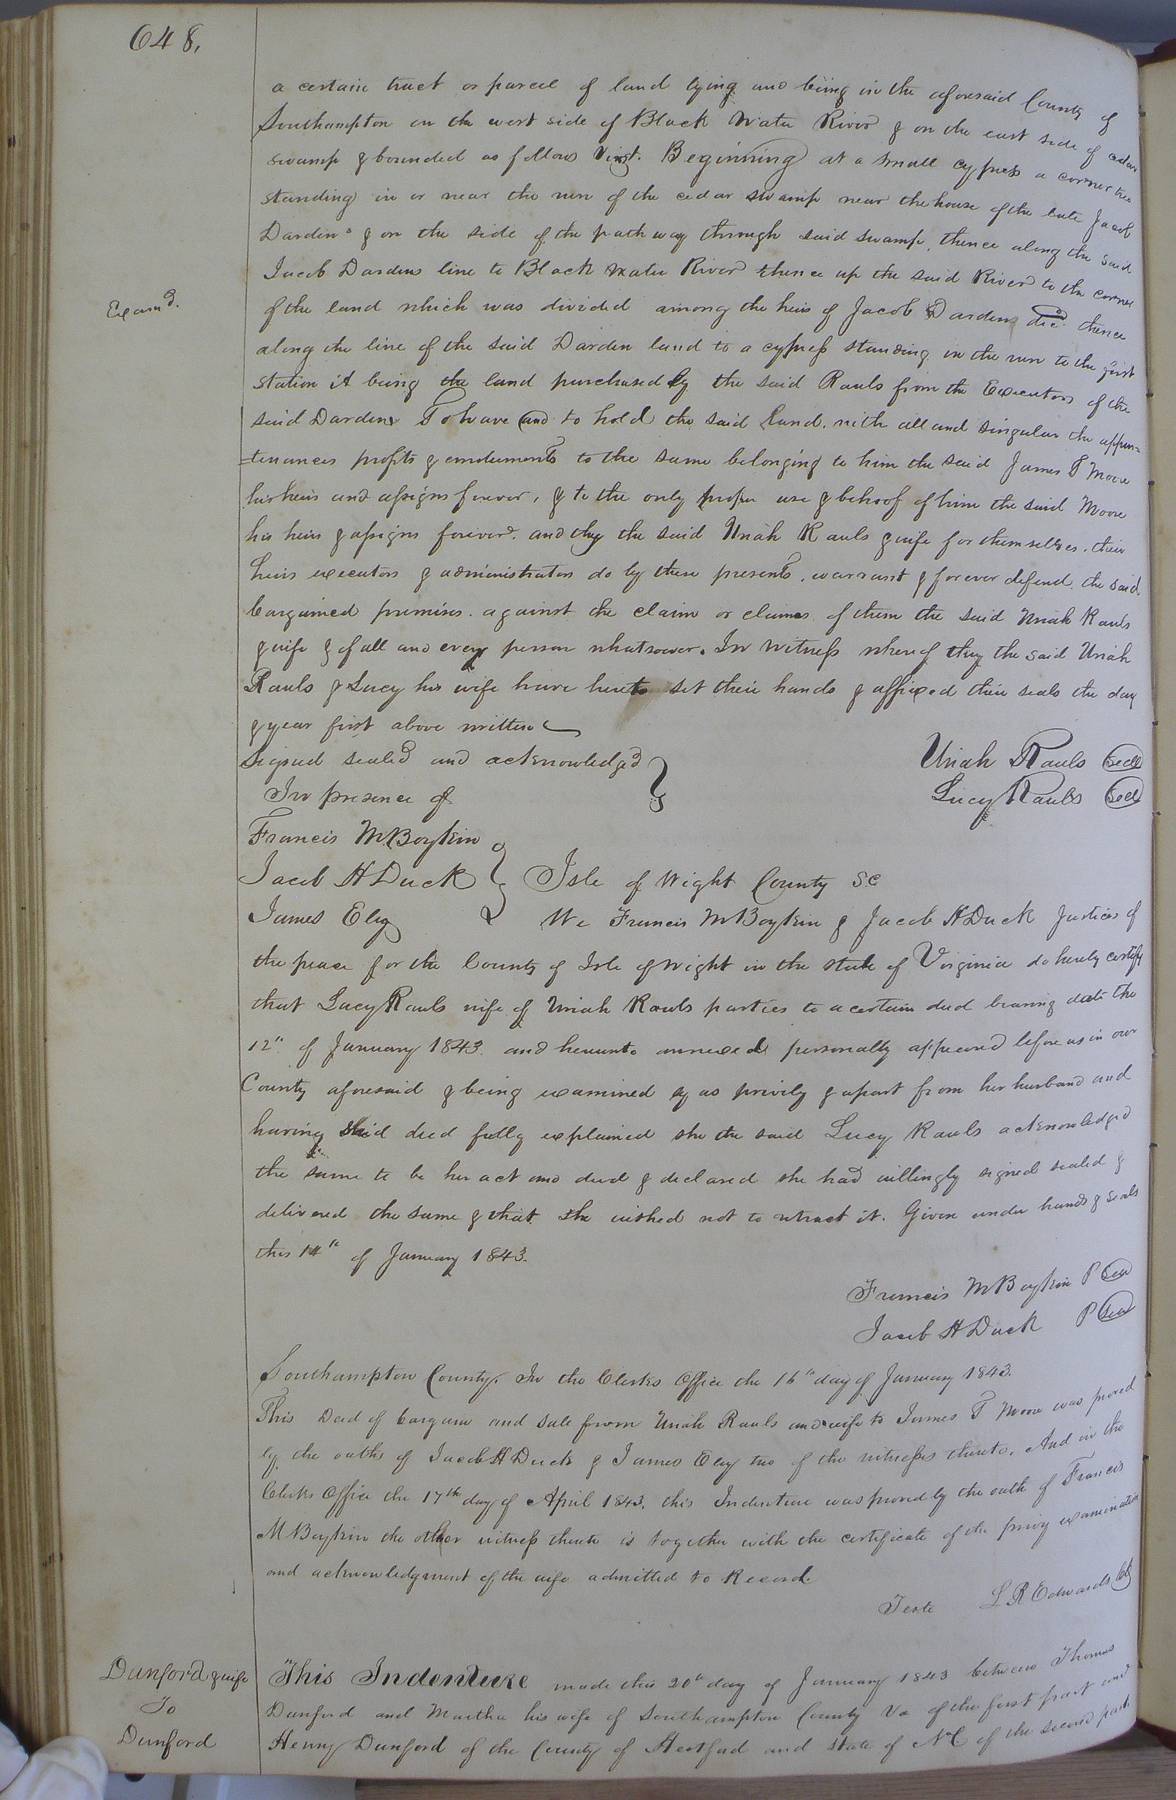 648,
a certain tract or parcel of land lying and being in the aforesaid County of
Southampton on the west side of Black Water River & on the east side of cedar
swamp & bounded as follows Vizt. Beginning at a small cypress a corner tree
standing in or near the run of the cedar swamp near the house of the late Jacob
Dardens & on the side of the path way through said swamp, thence along the said
Jacob Dardens line to Black water River thence up the said River to the corner
Examd.
of the land which was divided among the heirs of Jacob Darden decd. thence
along the line of the said Darden land to a cypress standing in the run to the first
station it being the land purchased by the said Rauls from the Executors of the
said Dardens To have and to hold the said land, with all and singular the appur=
=tenances profits & emoluments to the same belonging to him the said James T Moore
his heirs and assigns forever, & to the only proper use & behoof of him the said Moore
his heirs & assigns forever. and they the said Uriah Rauls & wife for themselves, their
heirs executors & administrators do by these presents, warrant & forever defend the said
bargained premises against the claim or claims of them the said Uriah Rauls
& wife & of all and every person whatsoever. In witness whereof they the said Uriah
Rauls & Lucy his wife have hereto set their hands & affixed their seals the day
& year first above written
Signed sealed and acknowledged
In presence of
Uriah Rauls Seal
Lucy Rauls Seal
Francis M Boykin
Jacob H Duck
James Ely
Isle of Wight County SC
We Francis M Boykin & Jacob H Duck Justices of
the peace for the County of Isle of Wight in the state of Virginia do hereby certify
that Lucy Rauls wife of Uriah Rawls parties to a certain deed bearing date the
12th of January 1843 and hereunto annexed personally appeared before us in our
County aforesaid & being examined by us privily & apart from her husband and
having said deed fully explained she the said Lucy Rauls acknowledged
the same to be her act and deed & declared she had willingly signed sealed &
delivered the same & that she wished not to retract it. Given under hands & seals
this 14th of January 1843.
Francis M Boykin P Seal
Jacob H Duck P Seal
Southampton County, In the Clerks Office the 16th day of January 1843.
This Deed of bargain and sale from Uriah Rauls and wife to James T Moore was proved
by the oaths of Jacob H Duck & James Ely two of the witnesses thereto. And in the
Clerks Office the 17th day of April 1843, this Indenture was proved by the oath of Francis
M Boykin the other witness thereto is together with the certificate of the privy examination
and acknowledgment of the wife admitted to Record.
Teste L R Edwards Clk
Dunford & wife
To
Dunford
This Indenture made this 20th day of January 1843 between Thomas
Dunford and Martha his wife of Southampton County Va of the first part and
Henry Dunford of the County of Hertford and state of NC of the second part